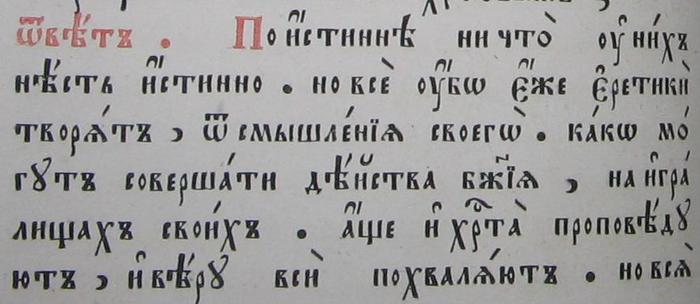 ѿвѣ́тъ. По и҆́стиннѣ ничто̀ ᲂу҆ ни́хъ
нѣ́сть и҆́стинно. но всѐ ᲂу҆́бѡ є҆́же є҆ретикѝ
творѧ́тъ, ѿ смышле́нїѧ своегѡ̀. ка́кѡ мо́
гꙋтъ соверша́ти дѣ́йства бж҃їѧ, на и҆гра́
лищахъ свои́хъ. а҆́ще и҆ хрⷭ҇та̀ проповѣ́дꙋ
ютъ, и҆ вѣ́рꙋ всѝ похвалѧ́ютъ. но всѧ̀